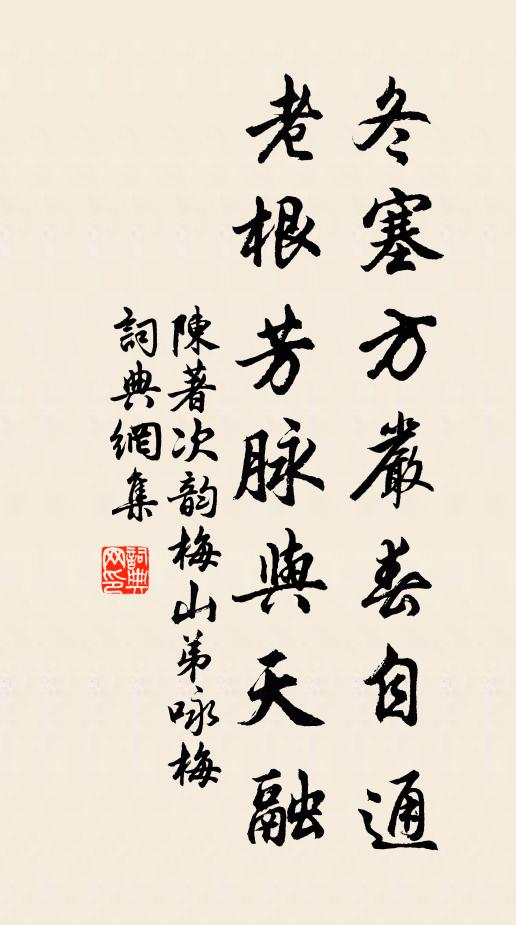 冬塞方嚴春自通
老根芳脉與天融
陳著次韵梅山弟咏梅
詞典網集
詞典網印